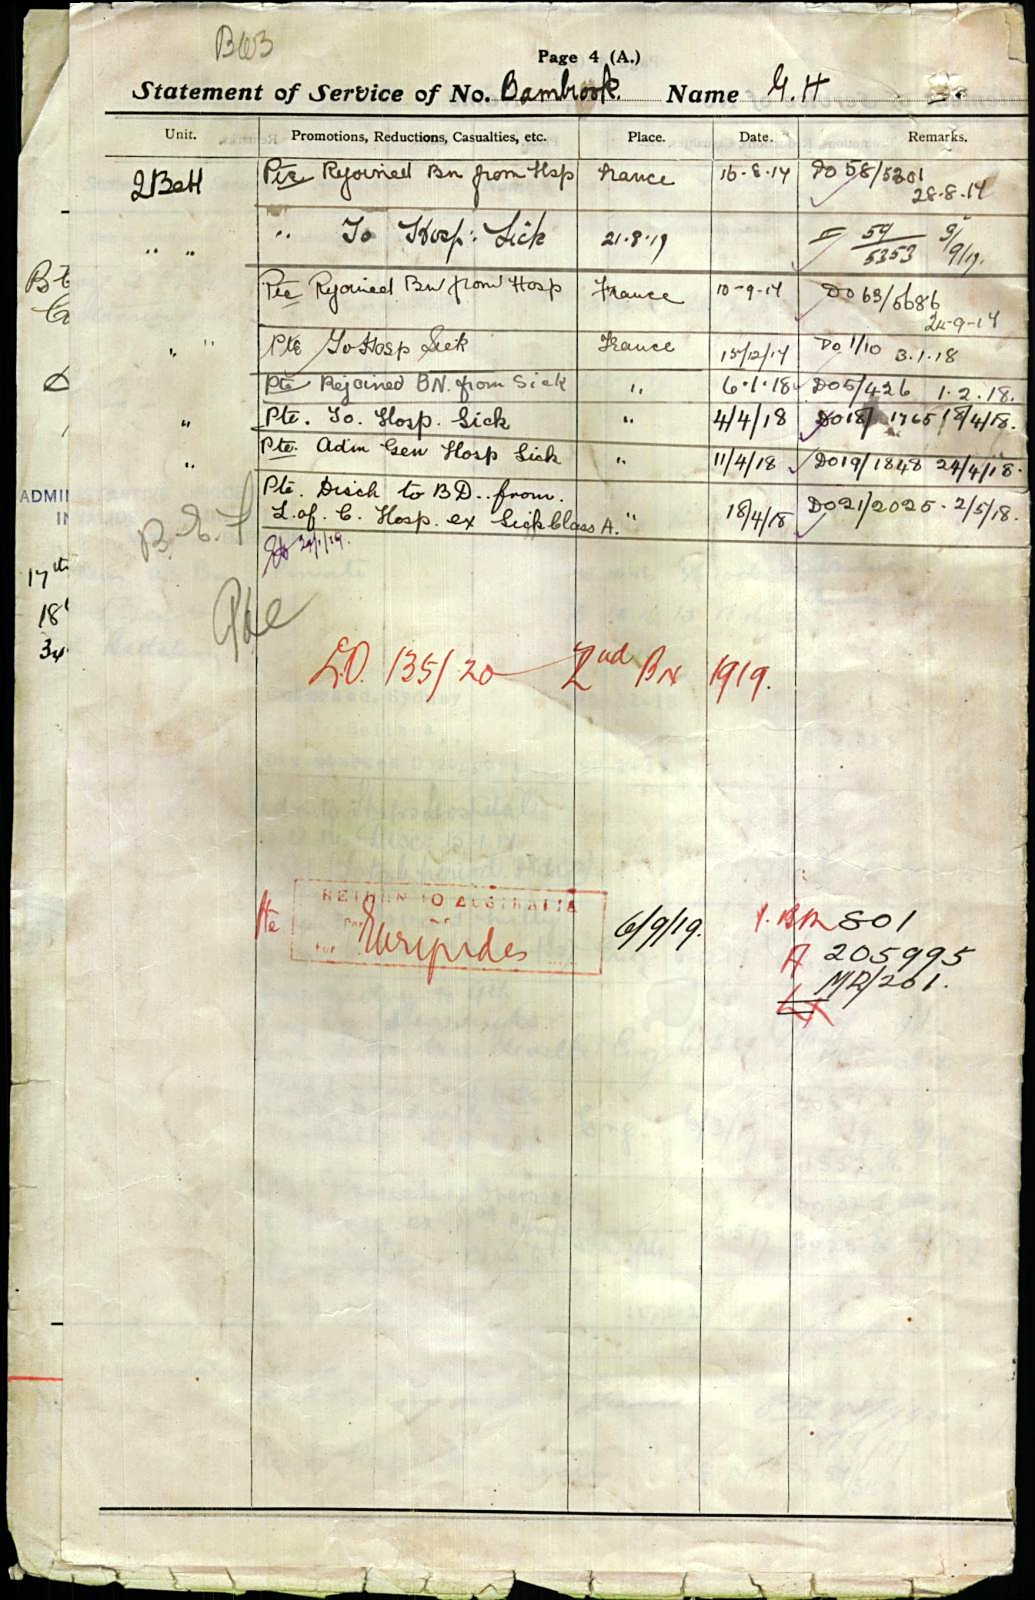 Page 4 (A.)
Statement of Service of No. Bambrook. Name G. H
Unit. Promotions, Reductions, Casualties, etc. Place. Date. Remarks.
2 Batt Pte Rejoined Bn from Hsp France 16-8-17 DO 58/5301
28-8-17
" " " To Hosp: Sick 21-8-17 59/5353 9/17.
Pte Rejoined Bn from Hosp France 10-9-17 DO 63/5686
24-9-17
" " Pte To Hosp Sick France 15/12/17 Do 1/10 3.1.18
Pte Rejoined BN. from Sick " 6.1.18 DO5/426 1.2.18.
" Pte. To. Hosp. Sick " 4/4/18 DO18/1765 18/4/18.
" Pte. Adm Gen Hosp Sick " 11/4/18 DO19/1848 24/4/18.
Pte. Disch to B D.. from.
L. of. C. Hosp. ex Sick Class A. " 18/4/18 DO21/2025. 2/5/18.
B. E. F
17th
18
34
ADMI
IN
135/20 2nd Bn 1919.
RETURN TO AUSTRALIA
Pte Euripides 6/9/19. 801
A 205995
MR/201.